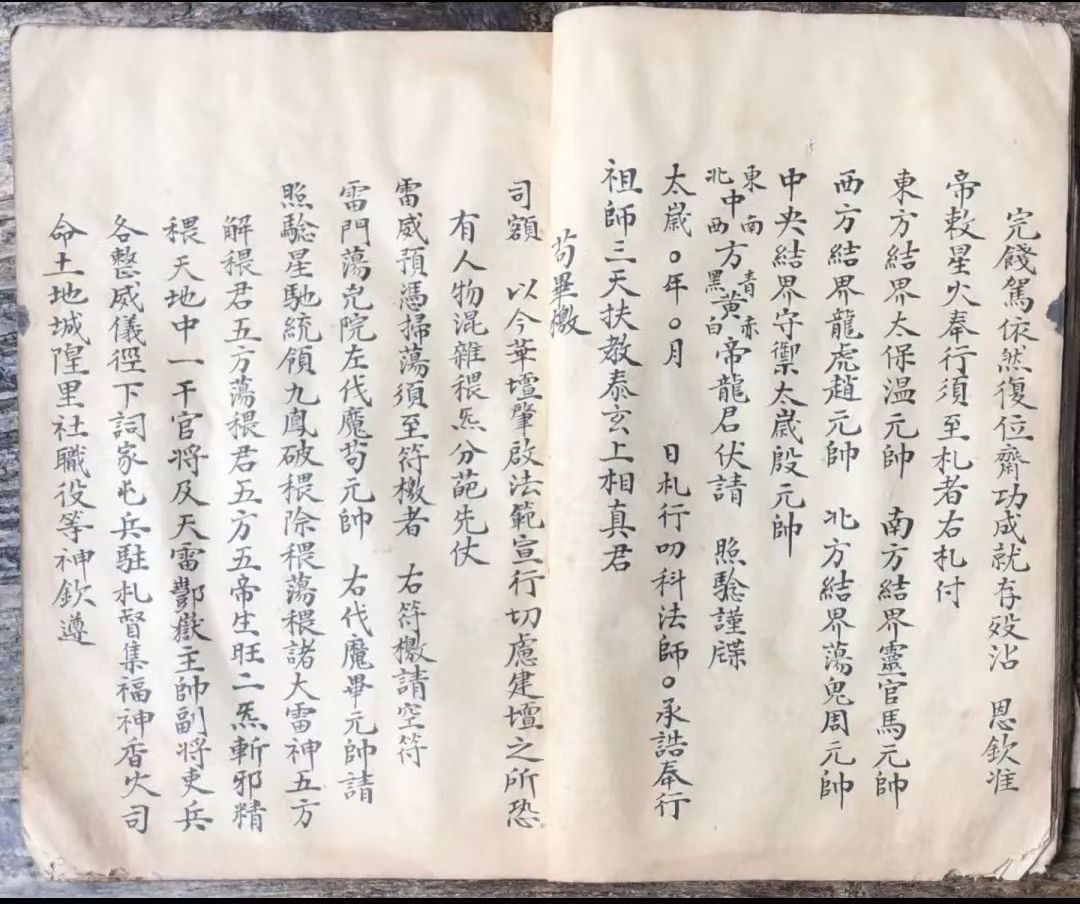 完餞駕依然復位齋功成就存殁沾　恩欽准
帝敕星火奉行須至札者右札付
東方結界太保温元帥　南方結界靈官馬元帥
西方結界龍虎趙元帥　北方結界蕩鬼周元帥
中央結界守禦太歲殷元帥
東南中北西方青赤黄黑白帝龍君伏請　照驗謹牒
太歲〇年〇月　　日札行叨科法師〇承誥奉行
祖師三天扶教泰玄上相真君
苟畢檄
司額　以今華壇肇啟法範宣行切慮建壇之所恐
有人物混雜穢炁分葩先仗
雷威預憑掃蕩須至符檄者　右符檄請空符
雷門蕩兇院左代魔苟元帥　右代魔畢元帥請
照驗星馳統領九鳳破穢除穢蕩穢諸大雷神五方
解穢君五方蕩穢君五方五帝生旺二炁斬邪精
穢天地中一干官將及天雷酆嶽主帥副將吏兵
各整威儀徑下詞家屯兵駐札督集福神香火司
命土地城隍里社職役等神欽遵